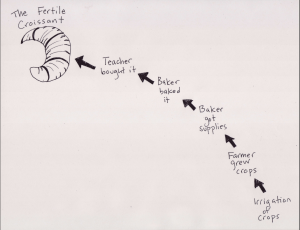 The Fertile
Croissant
Teacher
bought it
Baker
baked
it
Baker
got
supplies
Farmer
grew
crops
Irrigation
of
Crops